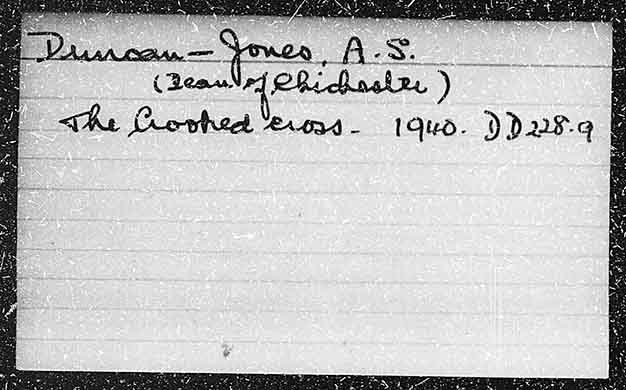 Duncan-Jones, A.S.
(Dean of Chichester)
The Crooked cross - 1940. DD228.9